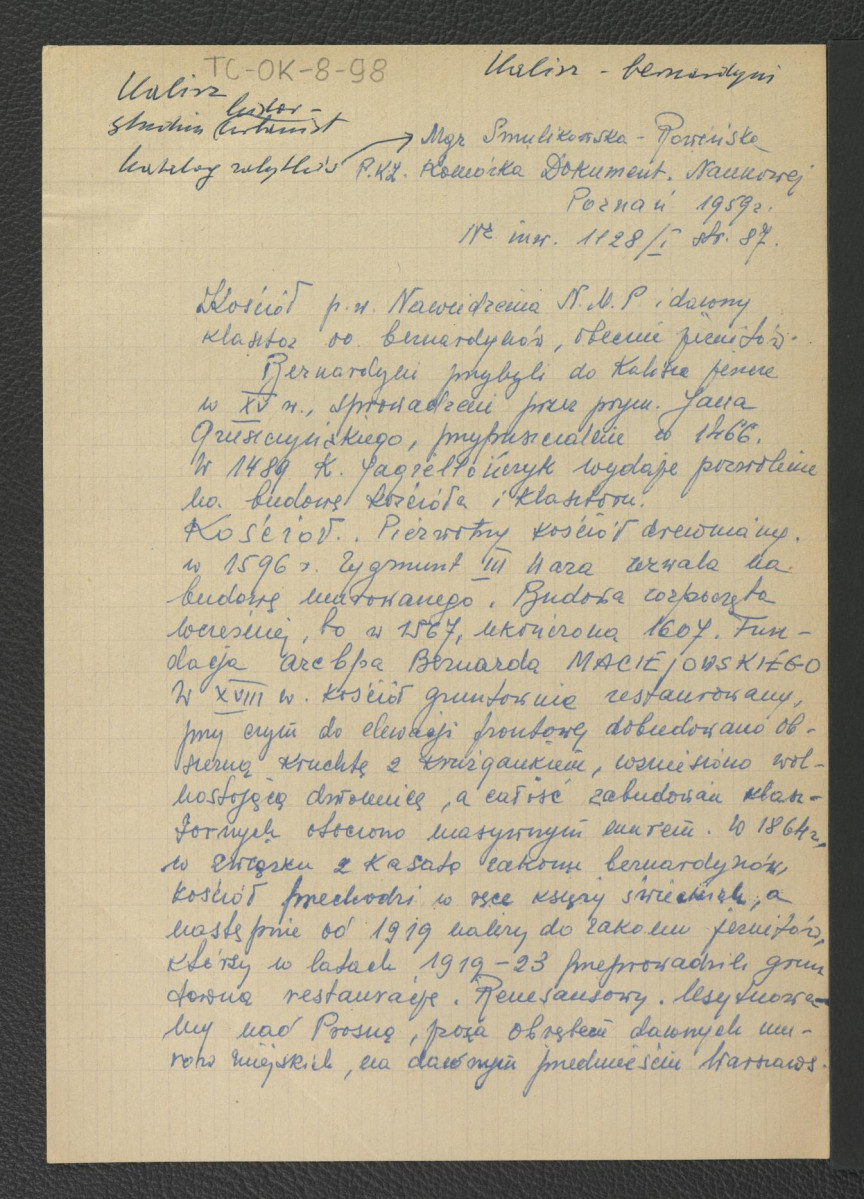 TC-OK-8-98
Kalisz - bernardyni
Kalisz
histor-
studium urbanist
katalog zabytków
Mgr Smulikowska - Rowińska
P.KZ. Komórka Dokument. Naukowej
Poznań 1959r.
Nr inw. 1128/I str. 87.
Kościół p.w. Nawiedzenia N.M.P i dawny
klasztor oo. bernardynów, obecnie jezuitów.
Bernardyni przybyli do Kalisza jeszcze
w XV w., sprowadzeni przez prym. Jana
Gruszczyńskiego, przypuszczalnie w 1466.
W 1489 K. Jagiellończyk wydaje pozwolenie
na budowę kościoła i klasztoru.
Kościół.. Pierwotny kościół drewniany.
w 1596 r. Zygmunt III Waza zezwala na
budowę murowanego. Budowa rozpoczęta
wcześniej, bo w 1567, ukończona 1607. Fun-
dacja arcbpa Bernarda MACIEJOWSKIEGO
W XVIII w. kościół gruntownie restaurowany,
przy czym do elewacji frontowej dobudowano ob-
szerną kruchtę z krużgankiem, wzniesiono wol-
nostojącą dzwonnicę, a całość zabudowań klasz-
tornych otoczono masywnym murem. W 1864r,
w związku z kasatą zakonu bernardynów,
kościół przechodzi w ręce księży świeckich, a
następnie od 1919 należy do zakonu jezuitów,
którzy w latach 1919-23 przeprowadzili grun
towną restaurację. Renesansowy. Usytuowa-
ny nad Prosną, poza obrębem dawnych mu-
rów miejskich, na dawnym przedmieściu Warszaws.